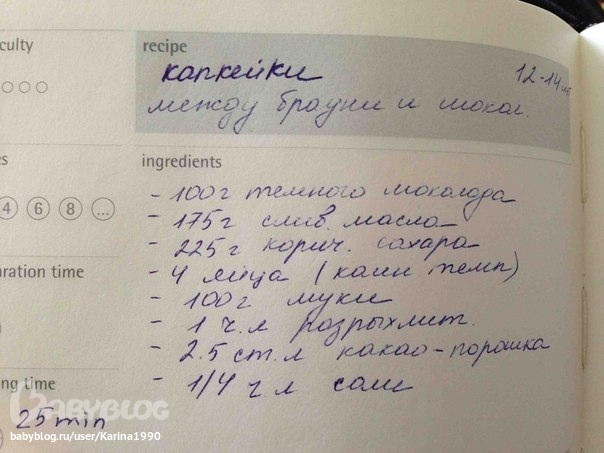 culty
recipe
капкейки
12-14 шт
между брауни и шокол.
es
ingredients
- 100 г темного шоколада
- 175 г слив. масла
- 225 г корич. сахара
4 6 8 ...
- 4 яйца (комн темп)
aration time
- 100 г муки
- 1 ч.л розрыхлит.
- 2.5 ст.л какао-порошка
- 1/4 ч л соли
ng time
25 min
BABYBLOG
babyblog.ru/user/Karina1990